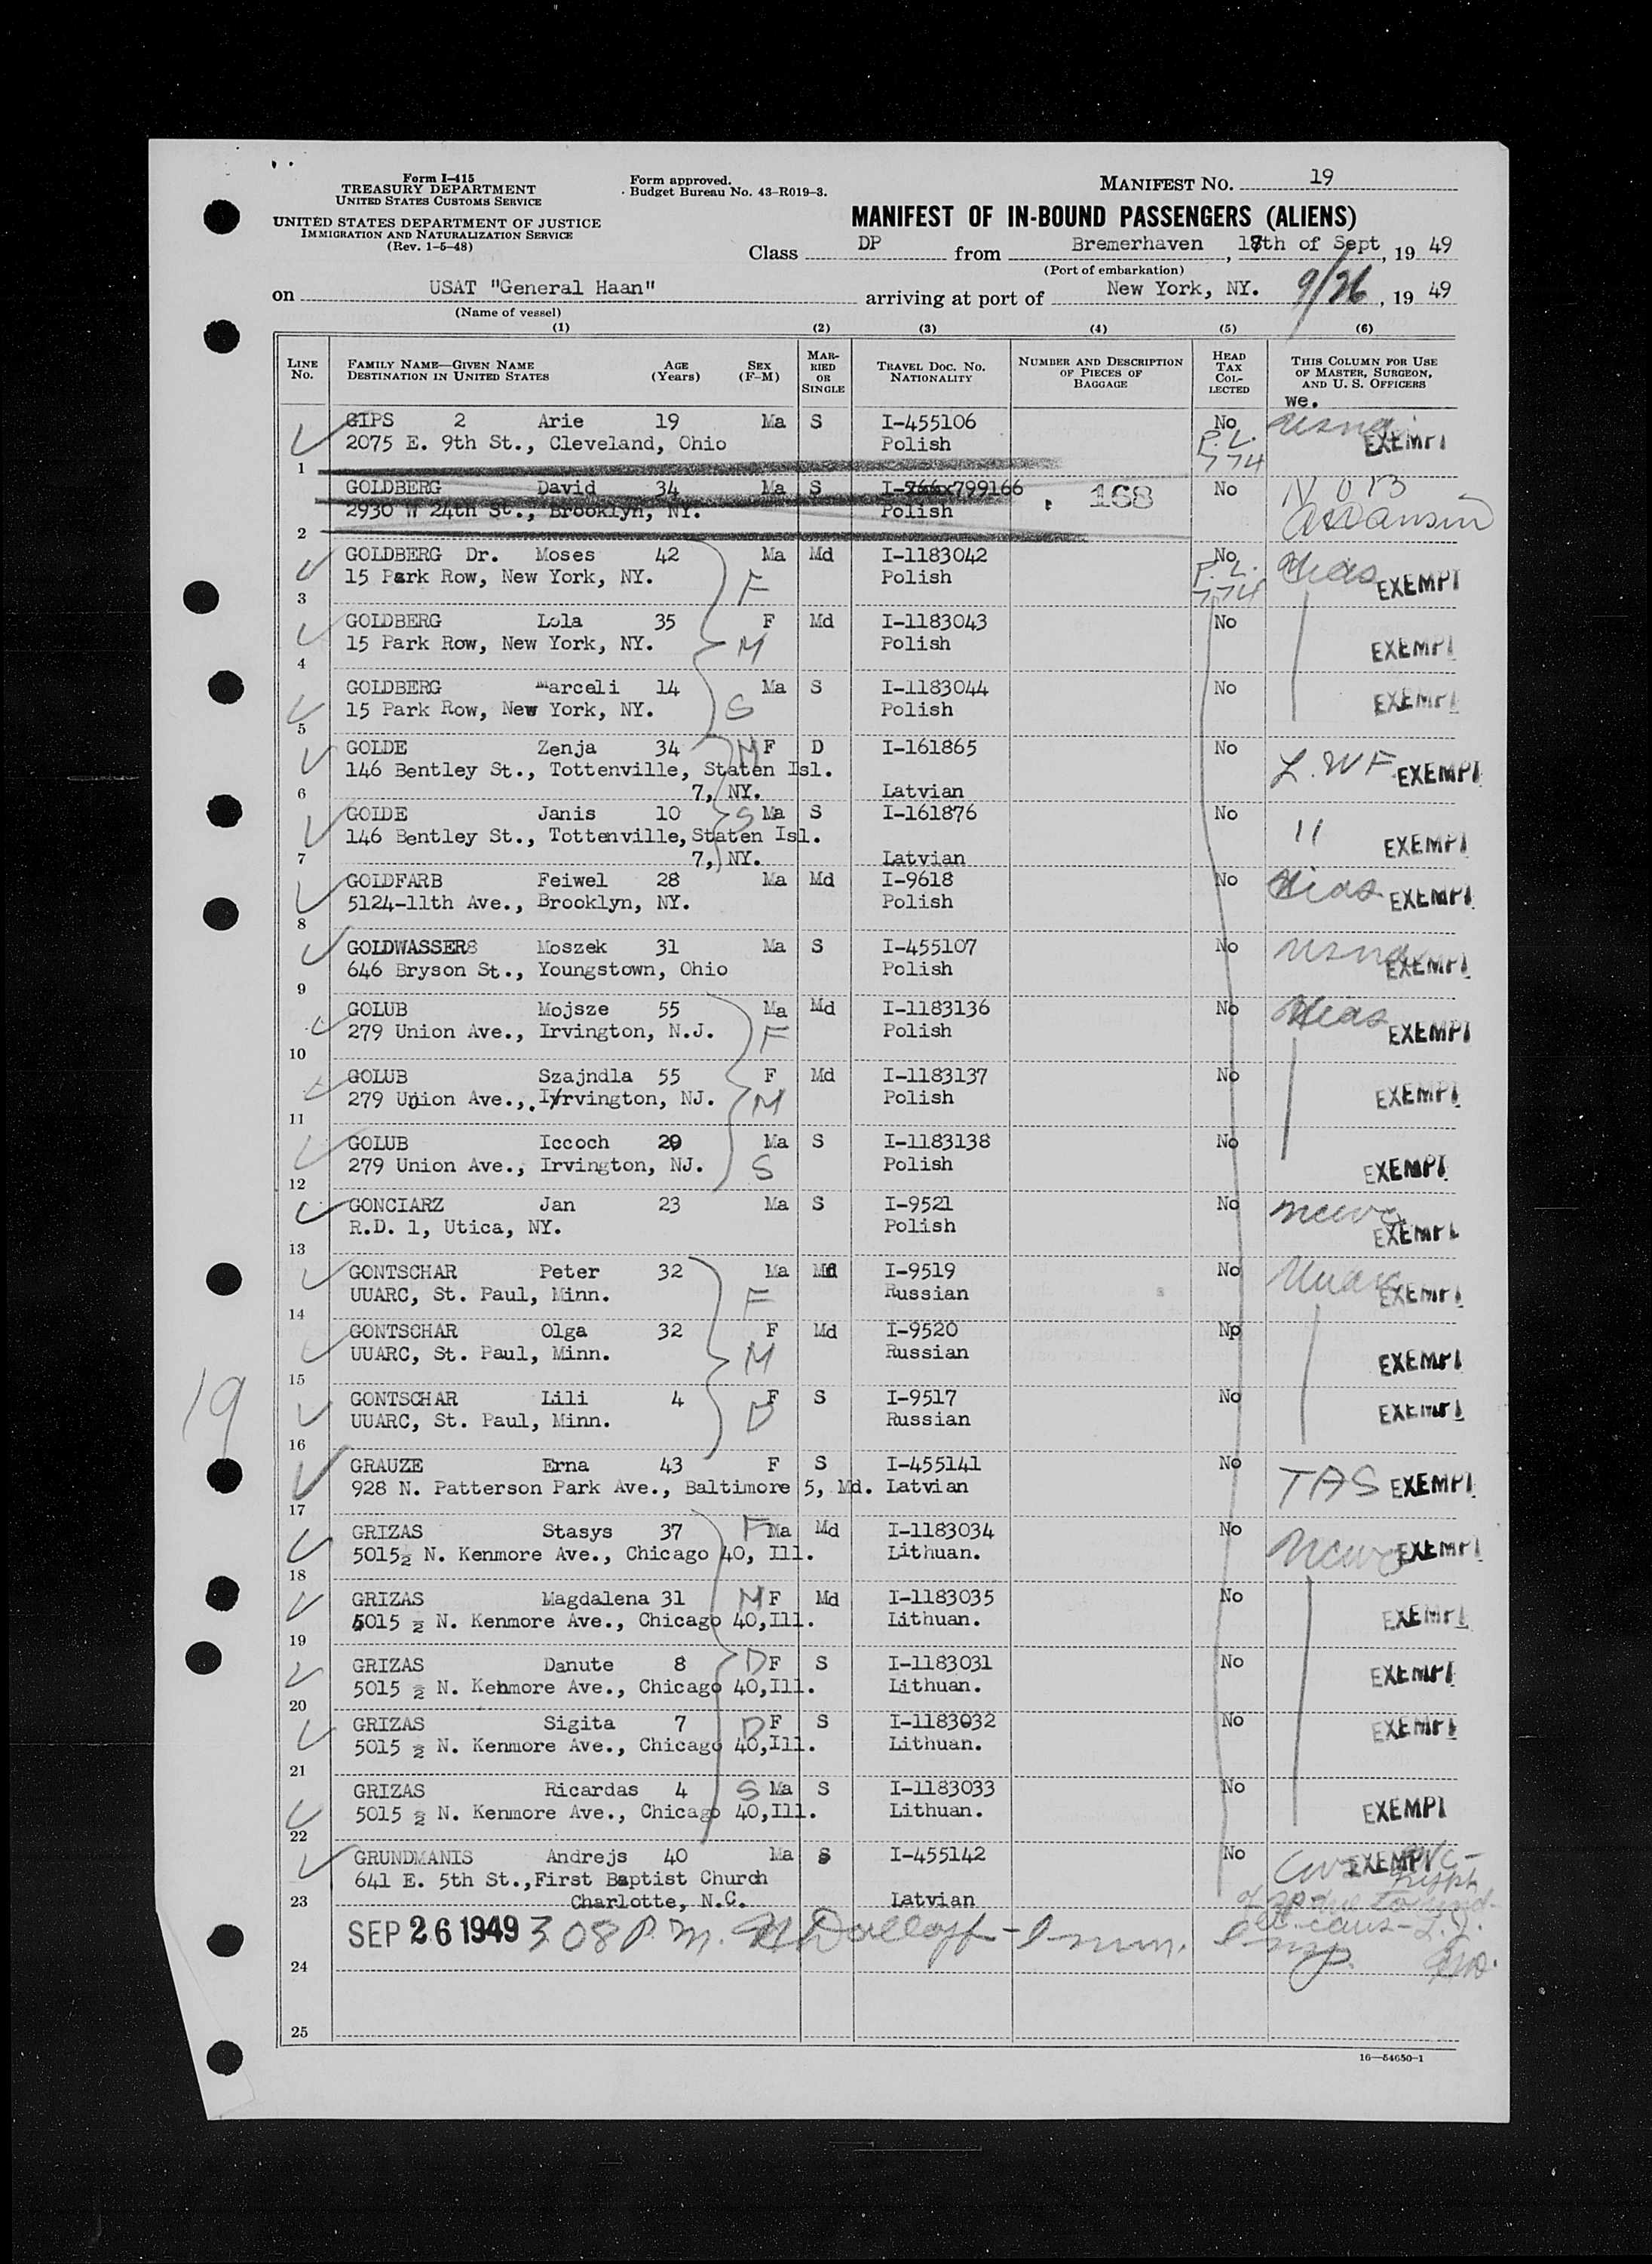 Form I-415
TREASURY DEPARTMENT
UNITED STATES CUSTOMS SERVICE
UNITED STATES DEPARTMENT OF JUSTICE
IMMIGRATION AND NATURALIZATION SERVICE
(Rev. 1-5-48)
Form approved.
Budget Bureau No. 43-R019-3.
MANIFEST NO. 19
MANIFEST OF IN-BOUND PASSENGERS (ALIENS)
Class DP from Bremerhaven, 18th of Sept, 19 49
(Port of embarkation)
on USAT "General Haan" arriving at port of New York, NY. 9/26, 19 49
(Name of vessel)
(1) (2) (3) (4) (5) (6)
LINE No. FAMILY NAME—GIVEN NAME DESTINATION IN UNITED STATES AGE (Years) SEX (F-M) MARRIED OR SINGLE TRAVEL DOC. NO. NATIONALITY NUMBER AND DESCRIPTION OF PIECES OF BAGGAGE HEAD TAX COLLECTED THIS COLUMN FOR USE OF MASTER, SURGEON, AND U. S. OFFICERS
we.
GIPS 2 Arie 19 Ma S I-455106 No usna
2075 E. 9th St., Cleveland, Ohio Polish P.L. 774 EXEMPT
1
GOLDBERG David 34 Ma S I-799166 168 No N O B
2930 W 24th St., Brooklyn, NY. Polish
2
GOLDBERG Dr. Moses 42 Ma Md I-1183042 No Hias
15 Park Row, New York, NY. F Polish P.L. 774 EXEMPT
3
GOLDBERG Lola 35 F Md I-1183043 No
15 Park Row, New York, NY. M Polish EXEMPT
4
GOLDBERG Marceli 14 Ma S I-1183044 No
15 Park Row, New York, NY. S Polish EXEMPT
5
GOLDE Zenja 34 M F D I-161865 No
146 Bentley St., Tottenville, Staten Isl. L.WF EXEMPT
6 7, NY. Latvian
GOLDE Janis 10 S Ma S I-161876 No
146 Bentley St., Tottenville, Staten Isl. 11 EXEMPT
7 7, NY. Latvian
GOLDFARB Feiwel 28 Ma Md I-9618 No Hias EXEMPT
5124-11th Ave., Brooklyn, NY. Polish
8
GOLDWASSERS Moszek 31 Ma S I-455107 No usna
646 Bryson St., Youngstown, Ohio Polish EXEMPT
9
GOLUB Mojsze 55 Ma Md I-1183136 No Hias
279 Union Ave., Irvington, N.J. F Polish EXEMPT
10
GOLUB Szajndla 55 F Md I-1183137 No
279 Union Ave., Irvington, NJ. M Polish EXEMPT
11
GOLUB Iccoch 20 Ma S I-1183138 No
279 Union Ave., Irvington, NJ. S Polish EXEMPT
12
GONCIARZ Jan 23 Ma S I-9521 No ncwc
R.D. 1, Utica, NY. Polish EXEMPT
13
GONTSCHAR Peter 32 Ma Md I-9519 No Uuarc
UUARC, St. Paul, Minn. F Russian EXEMPT
14
GONTSCHAR Olga 32 F Md I-9520 No
UUARC, St. Paul, Minn. M Russian EXEMPT
15
GONTSCHAR Lili 4 F S I-9517 No
UUARC, St. Paul, Minn. D Russian EXEMPT
16
19
GRAUZE Erna 43 F S I-455141 No
928 N. Patterson Park Ave., Baltimore 5, Md. Latvian TAS EXEMPT
17
GRIZAS Stasys 37 F Ma Md I-1183034 No
5015½ N. Kenmore Ave., Chicago 40, Ill. Lithuan. ncwc EXEMPT
18
GRIZAS Magdalena 31 M F Md I-1183035 No
5015 ½ N. Kenmore Ave., Chicago 40,Ill. Lithuan. EXEMPT
19
GRIZAS Danute 8 D F S I-1183031 No
5015 ½ N. Kenmore Ave., Chicago 40,Ill. Lithuan. EXEMPT
20
GRIZAS Sigita 7 D F S I-1183032 No
5015 ½ N. Kenmore Ave., Chicago 40,Ill. Lithuan. EXEMPT
21
GRIZAS Ricardas 4 S Ma S I-1183033 No
5015 ½ N. Kenmore Ave., Chicago 40,Ill. Lithuan. EXEMPT
22
GRUNDMANIS Andrejs 40 Ma S I-455142 No EXEMPT
641 E. 5th St.,First Baptist Church
23 Charlotte, N.C. Latvian
SEP 26 1949 3 08 P.m. Imm. Insp.
24
25
16—54650-1